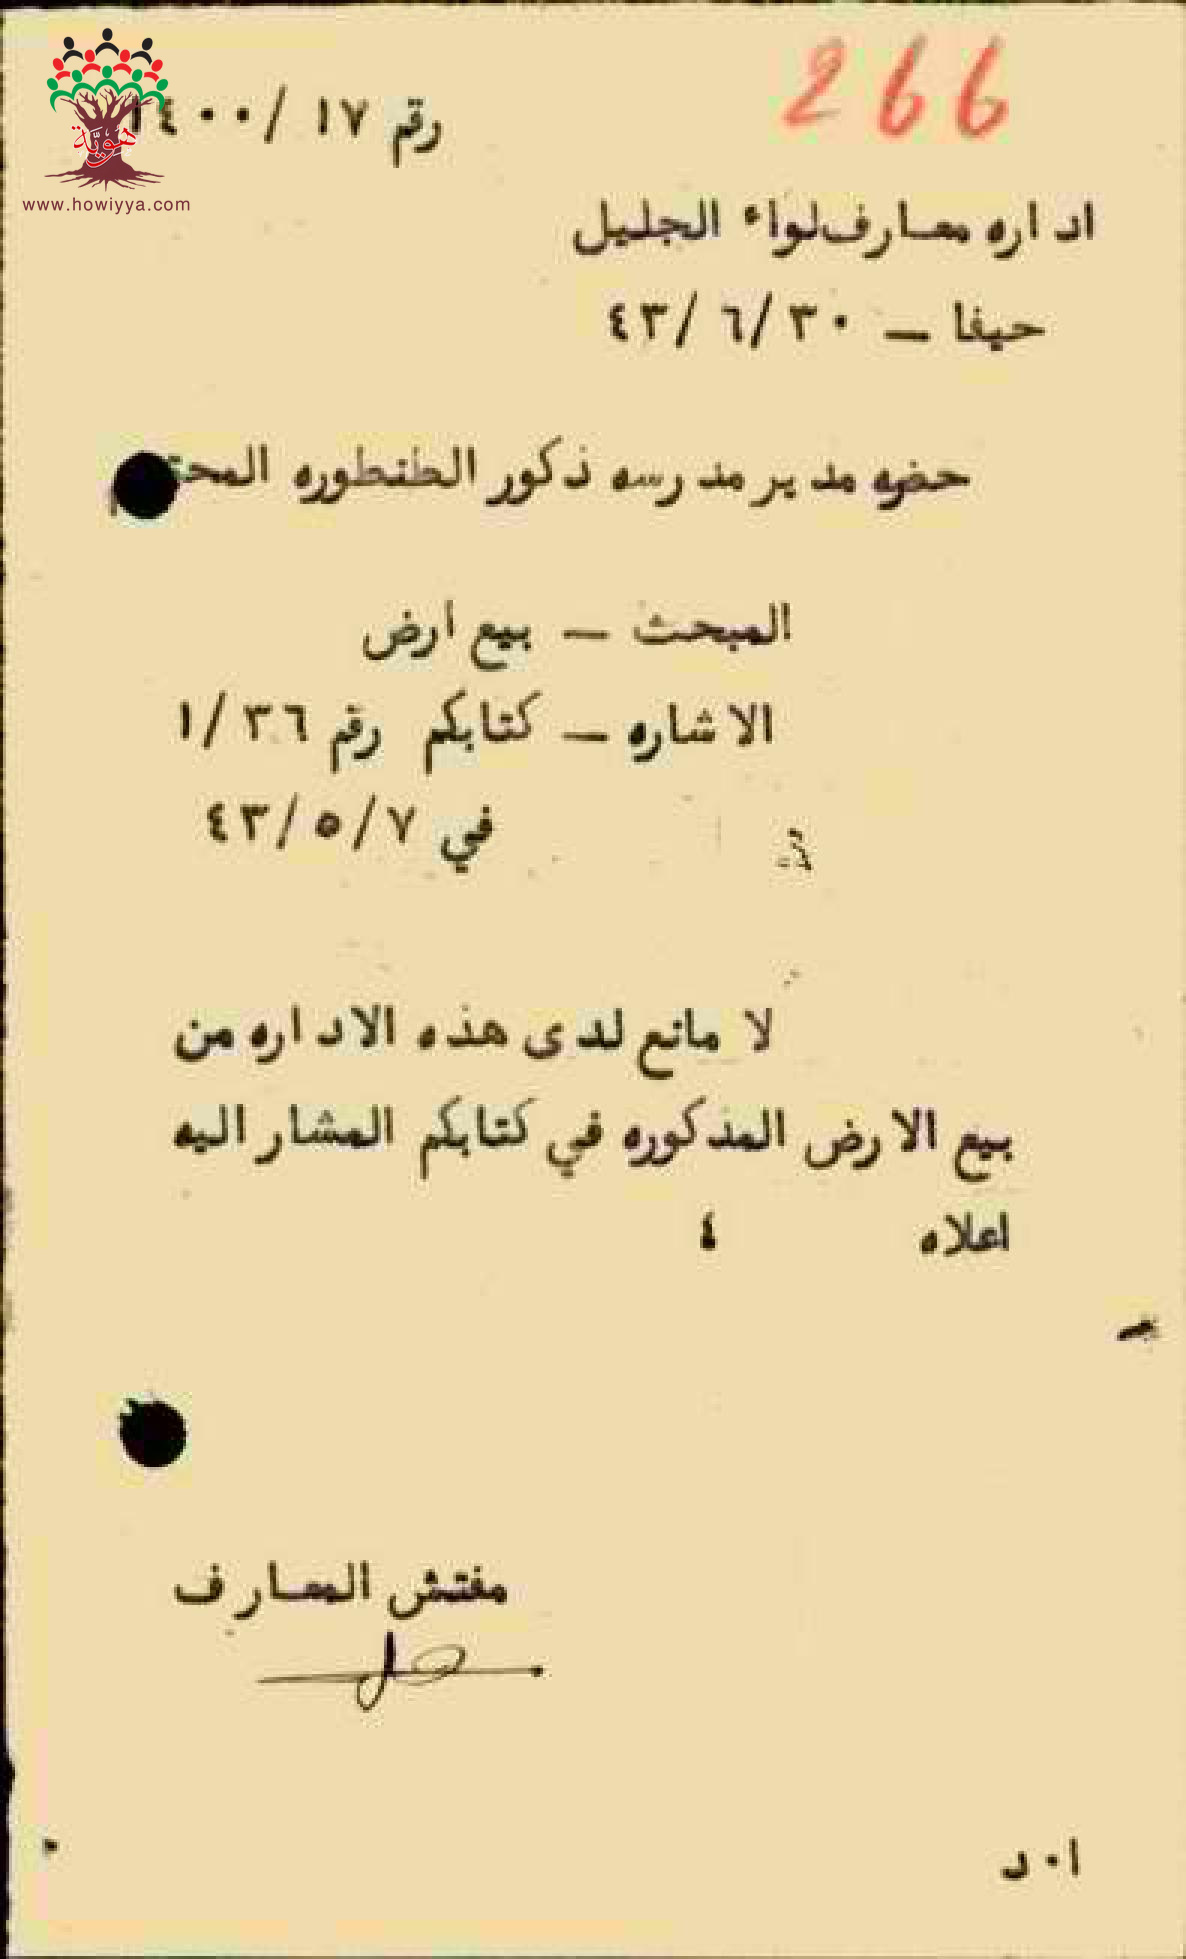 266
رقم ١٧ /١٤٠٠
هوية
www.howiyya.com
اداره معارف لواء الجليل
حيفا — ٤٣/ ٦/ ٣٠
حضره مدير مدرسه ذكور الطنطوره المحترم
المبحث — بيع ارض
الاشاره — كتابكم رقم ١/ ٣٦
في ٤٣/ ٥/ ٧
لا مانع لدى هذه الاداره من
بيع الارض المذكوره في كتابكم المشار اليه
اعلاه
مفتش المعارف
ا ٠ د